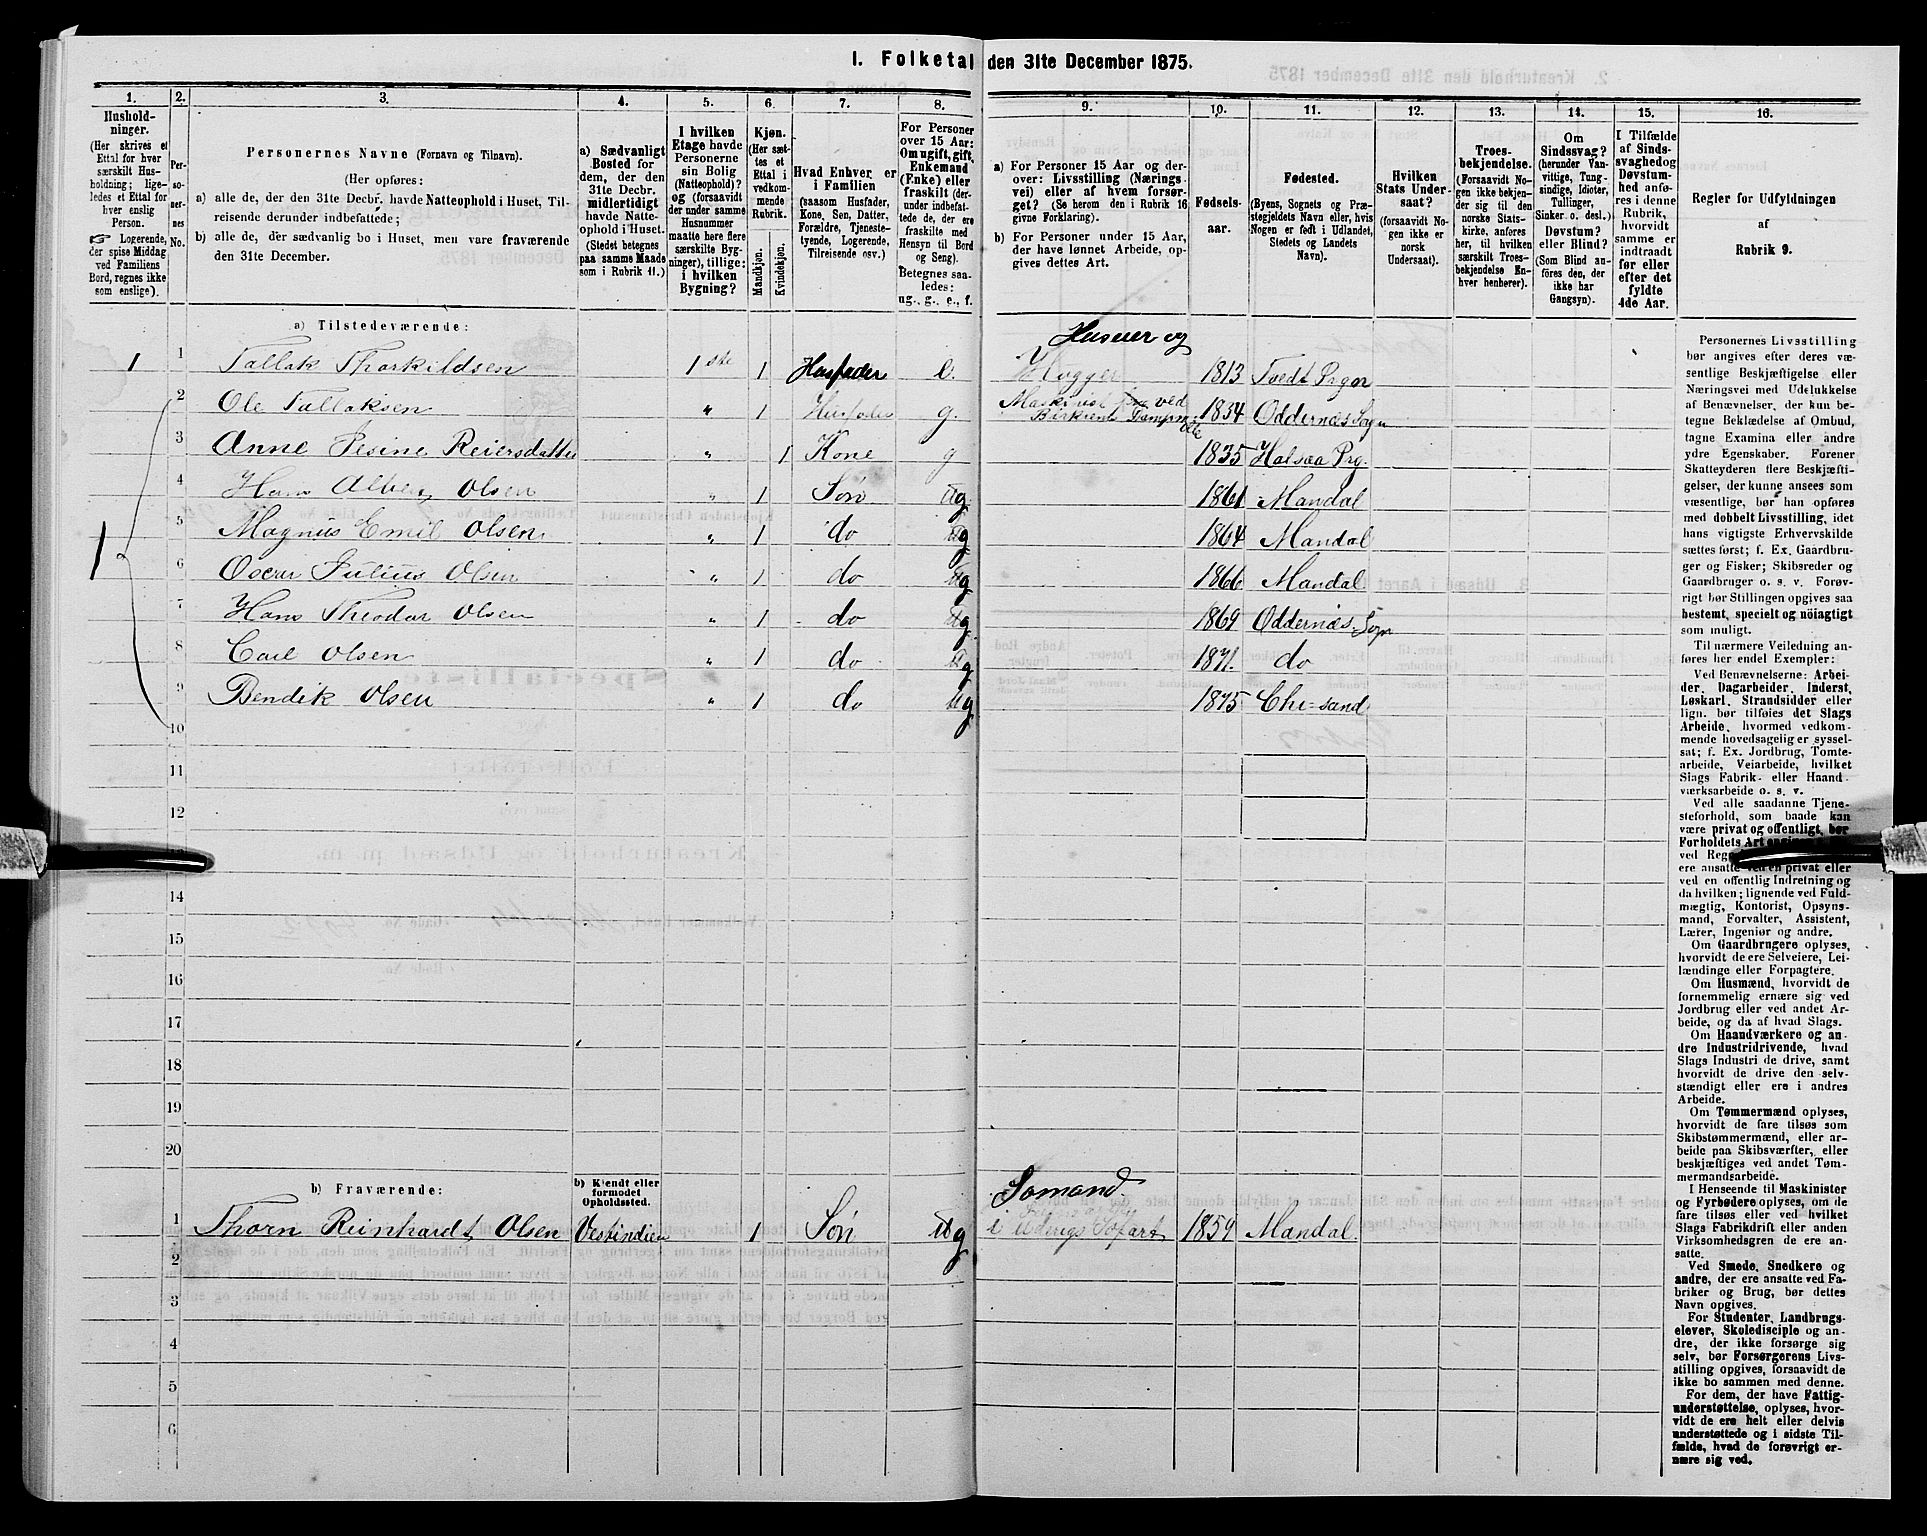 I. Folketal den 31te December 1875.
1.
Hushold-
ninger.
(Her skrives et
Ettal for hver
særskilt Hus-
holdning; lige-
ledes et Ettal for
hver enslig
Person.
☞ Logerende,
der spise Middag
ved Familiens
Bord, regnes ikke
som enslige).
2.
Per-
so-
ner-
nes
No.
3.
Personernes Navne (Fornavn og Tilnavn).
(Her opføres:
a) alle de, der den 31te Decbr. havde Natteophold i Huset, Til-
reisende derunder indbefattede;
b) alle de, der sædvanlig bo i Huset, men vare fraværende
den 31te December.
4.
a) Sædvanligt
Bosted for
dem, der den
31te Decbr.
midlertidigt
havde Natte-
ophold i Huset.
(Stedet betegnes
paa samme Maade
som i Rubrik 11.)
5.
I hvilken
Etage havde
Personerne
sin Bolig
(Natteophold)?
og (forsaavidt
der under samme
Husnummer
maatte høre flere
særskilte Byg-
ninger), tillige:
i hvilken
Bygning?
6.
Kjøn.
(Her sæt-
tes et
Ettal i
vedkom-
mende
Rubrik.
Mandkjøn.
Kvindekjøn.
7.
Hvad Enhver er
i Familien
(saasom Husfader,
Kone, Søn, Datter,
Forældre, Tjeneste-
tyende, Logerende,
Tilreisende osv.)
8.
For Personer
over 15 Aar:
Om ugift, gift,
Enkemand
(Enke) eller
fraskilt (der-
under indbefat-
tede de, der ere
fraskilte med
Hensyn til Bord
og Seng).
Betegnes saa-
ledes:
ug., g., e., f.
9.
a) For Personer 15 Aar og der-
over: Livsstilling (Nærings-
vei) eller af hvem forsør-
get? (Se herom den i Rubrik 16
givne Forklaring).
b) For Personer under 15 Aar,
der have lønnet Arbeide, op-
gives dettes Art.
10.
Fødsels-
aar.
11.
Fødested.
(Byens, Sognets og Præ-
stegjeldets Navn eller, hvis
Nogen er født i Udlandet,
Stedets og Landets
Navn).
12.
Hvilken
Stats Under-
saat?
(forsaavidt No-
gen ikke er
norsk
Undersaat).
13.
Troes-
bekjendelse.
(Forsaavidt No-
gen ikke bekjen-
der sig til den
norske Stats-
kirke, anføres
her, til hvilken
særskilt Troes-
bekjendelse En-
hver henhører).
14.
Om
Sindssvag?
(herunder Van-
vittige, Tung-
sindige, Idioter,
Tullinger,
Sinker o. desl.)
Døvstum?
eller Blind?
(Som Blind an-
føres den, der
ikke har
Gangsyn).
15.
I Tilfælde
af Sinds-
svaghed og
Døvstum-
hed anfø-
res i denne
Rubrik,
hvorvidt
samme er
indtraadt
før eller
efter det
fyldte
4de Aar.
16.
Regler for Udfyldningen
af
Rubrik 9.
a) Tilstedeværende:
Huseier og
1 1 Tallak Thorkildsen 1ste 1 Husfader e. Hugger 1813 Tvedt Prgn
2 Ole Tallaksen " 1 Husfader g. Maskinist ved 1834 Oddernæs Sogn
3 Anne Resine Reiersdatter " 1 Kone g 1835 Halsaa Prg.
4 Hans Albert Olsen " 1 Søn ug 1861 Mandal
5 Magnus Emil Olsen " 1 do ug 1864 Mandal
1 6 Oscar Julius Olsen " 1 do ug 1866 Mandal
7 Hans Theodor Olsen " 1 do ug 1869 Oddernæs Sogn
8 Carl Olsen " 1 do ug 1871. do
9 Bendik Olsen " 1 do ug 1875 Chr=sand
10
11
12
14
15
16
17
18
19
20
b) Fraværende:
b) Kjendt eller
formodet
Opholdssted.
Sømand
1 Thorn Reinhardt Olsen Vestindien 1 Søn ug i Udenrigs Søfart 1859 Mandal.
2
3
4
5
6
Personernes Livsstilling
bør angives efter deres væ-
sentlige Beskjæftigelse eller
Næringsvei med Udelukkelse
af Benævnelser, der kun be-
tegne Beklædelse af Ombud,
tagne Examina eller andre
ydre Egenskaber. Forener
Skatteyderen flere Beskjæfti-
gelser, der kunne ansees som
væsentlige, bør han opføres
med dobbelt Livsstilling, idet
hans vigtigste Erhvervskilde
sættes først; f. Ex. Gaardbru-
ger og Fisker; Skibsreder og
Gaardbruger o. s. v. Forøv-
rigt bør Stillingen opgives saa
bestemt, specielt og nöiagtigt
som muligt.
Til nærmere Veiledning an-
føres her endel Exempler:
Ved Benævnelserne: Arbei-
der, Dagarbeider, Inderst,
Løskarl, Strandsidder eller
lign. bør tilføies det Slags
Arbeide, hvormed vedkom-
mende hovedsagelig er syssel-
sat; f. Ex. Jordbrug, Tomte-
arbeide, Veiarbeide, hvilket
Slags Fabrik- eller Haand-
værksarbeide o. s. v.
Ved alle saadanne Tjene-
steforhold, som baade kan
være privat og offentligt, bør
Forholdets Art
ved
ere ansatte ved en privat eller
ved en offentlig Indretning og
da hvilken; lignende ved Fuld-
mægtig, Kontorist, Opsyns-
mand, Forvalter, Assistent,
Lærer, Ingeniør og andre.
Om Gaardbrugere oplyses,
hvorvidt de ere Selveiere, Lei-
lændinge eller Forpagtere.
Om Husmænd, hvorvidt de
fornemmelig ernære sig ved
Jordbrug eller ved andet Ar-
beide, og da af hvad Slags.
Om Haandværkere og an-
dre Industridrivende, hvad
Slags Industri de drive, samt
hvorvidt de drive den selv-
stændigt eller ere i andres
Arbeide.
Om Tømmermænd oplyses,
hvorvidt de fare tilsøs som
Skibstømmermænd, eller ar-
beide paa Skibsværfter, eller
beskjæftiges ved andet Tøm-
mermandsarbeide.
I Henseende til Maskinister
og Fyrbødere oplyses, om de
fare tilsøs eller ved hvilket
Slags Fabrikdrift eller anden
Virksomhedsgren de ere an-
satte.
Ved Smede, Snedkere og
andre, der ere ansatte ved Fa-
briker og Brug, bør dettes
Navn opgives.
For Studenter, Landbrugs-
elever, Skoledisciple og an-
dre, der ikke forsørge sig
selv, bør Forsørgerens Livs-
stilling opgives, forsaavidt de
ikke bo sammen med denne.
For dem, der have Fattig-
understøttelse, oplyses, hvor-
vidt de ere helt eller delvis
understøttede og i sidste Til-
fælde, hvad de forøvrigt er-
nære sig ved.